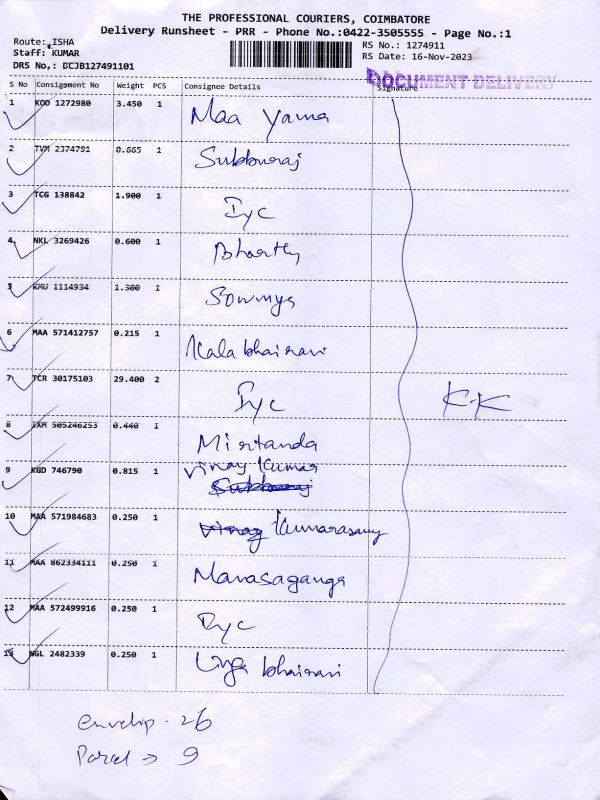 THE PROFESSIONAL COURIERS, COIMBATORE
Delivery Runsheet - PRR - Phone No.:0422-3505555 - Page No.:1
Route: ISHA
Staff: KUMAR
DRS No,: DCJB127491101
RS No.: 1274911
RS Date: 16-Nov-2023
DOCUMENT DELIVERY
S No Consigment No Weight PCS Consignee Details Signature
1 KOD 1272980 3.450 1 Maa Yama
2 TVM 2374791 0.665 1 Subburaj
3 TCG 138842 1.900 1 Iyc
4 NKL 3269426 0.600 1 Bharthy
5 KMU 1114934 1.300 1 Sowmya
6 MAA 571412757 0.215 1 Kalabhairavi
7 TCR 30175103 29.400 2 Iyc K.K
8 IXM 505246253 0.440 1 Mirtanda
9 KGD 746790 0.815 1 Vinay Kumar
Subburaj
10 MAA 571984683 0.250 1 Vinay Kumarasamy
11 MAA 862334111 0.250 1 Manasaganga
12 MAA 572499916 0.250 1 Iyc
13 NGL 2482339 0.250 1 Linga bhairavi
Envelip - 26
Parcel → 9